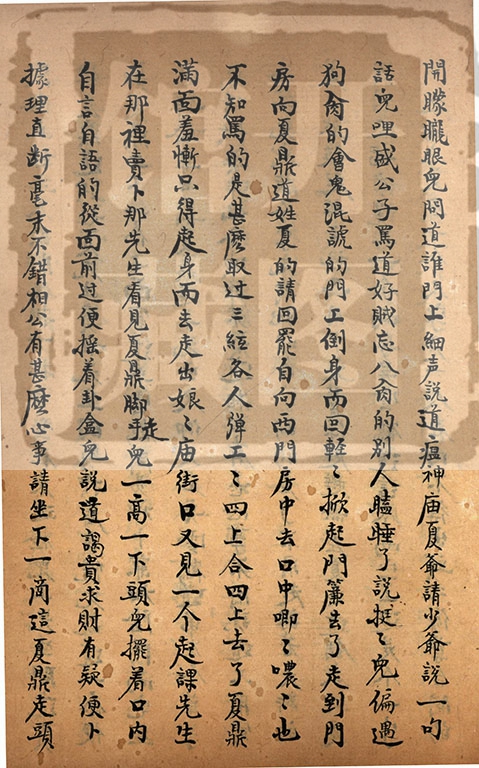 開朦朧眼兒問道誰門上細声說道瘟神庙夏爺請少爺說一句
話兒哩盛公子罵道好賊忘八肏的別人瞌睡了說挺〻兒偏遇
狗肏的會鬼混諕的門工倒身而回輕〻掀起門簾去了走到門
房向夏鼎道姓夏的請回罷自向西門房中去口中唧〻噥〻也
不知罵的是甚麽取过三絃各人彈工〻四上合四上去了夏鼎
滿面羞慚只得起身而去走出娘〻庙街口又見一个起課先生
在那裡賣卜那先生看見夏鼎脚手兒一高一下頭兒擺着口内
自言自語的從面前过便搖着卦盒兒說道謁貴求財有疑便卜
據理直断毫末不錯相公有甚麽心事請坐下一商這夏鼎走頭